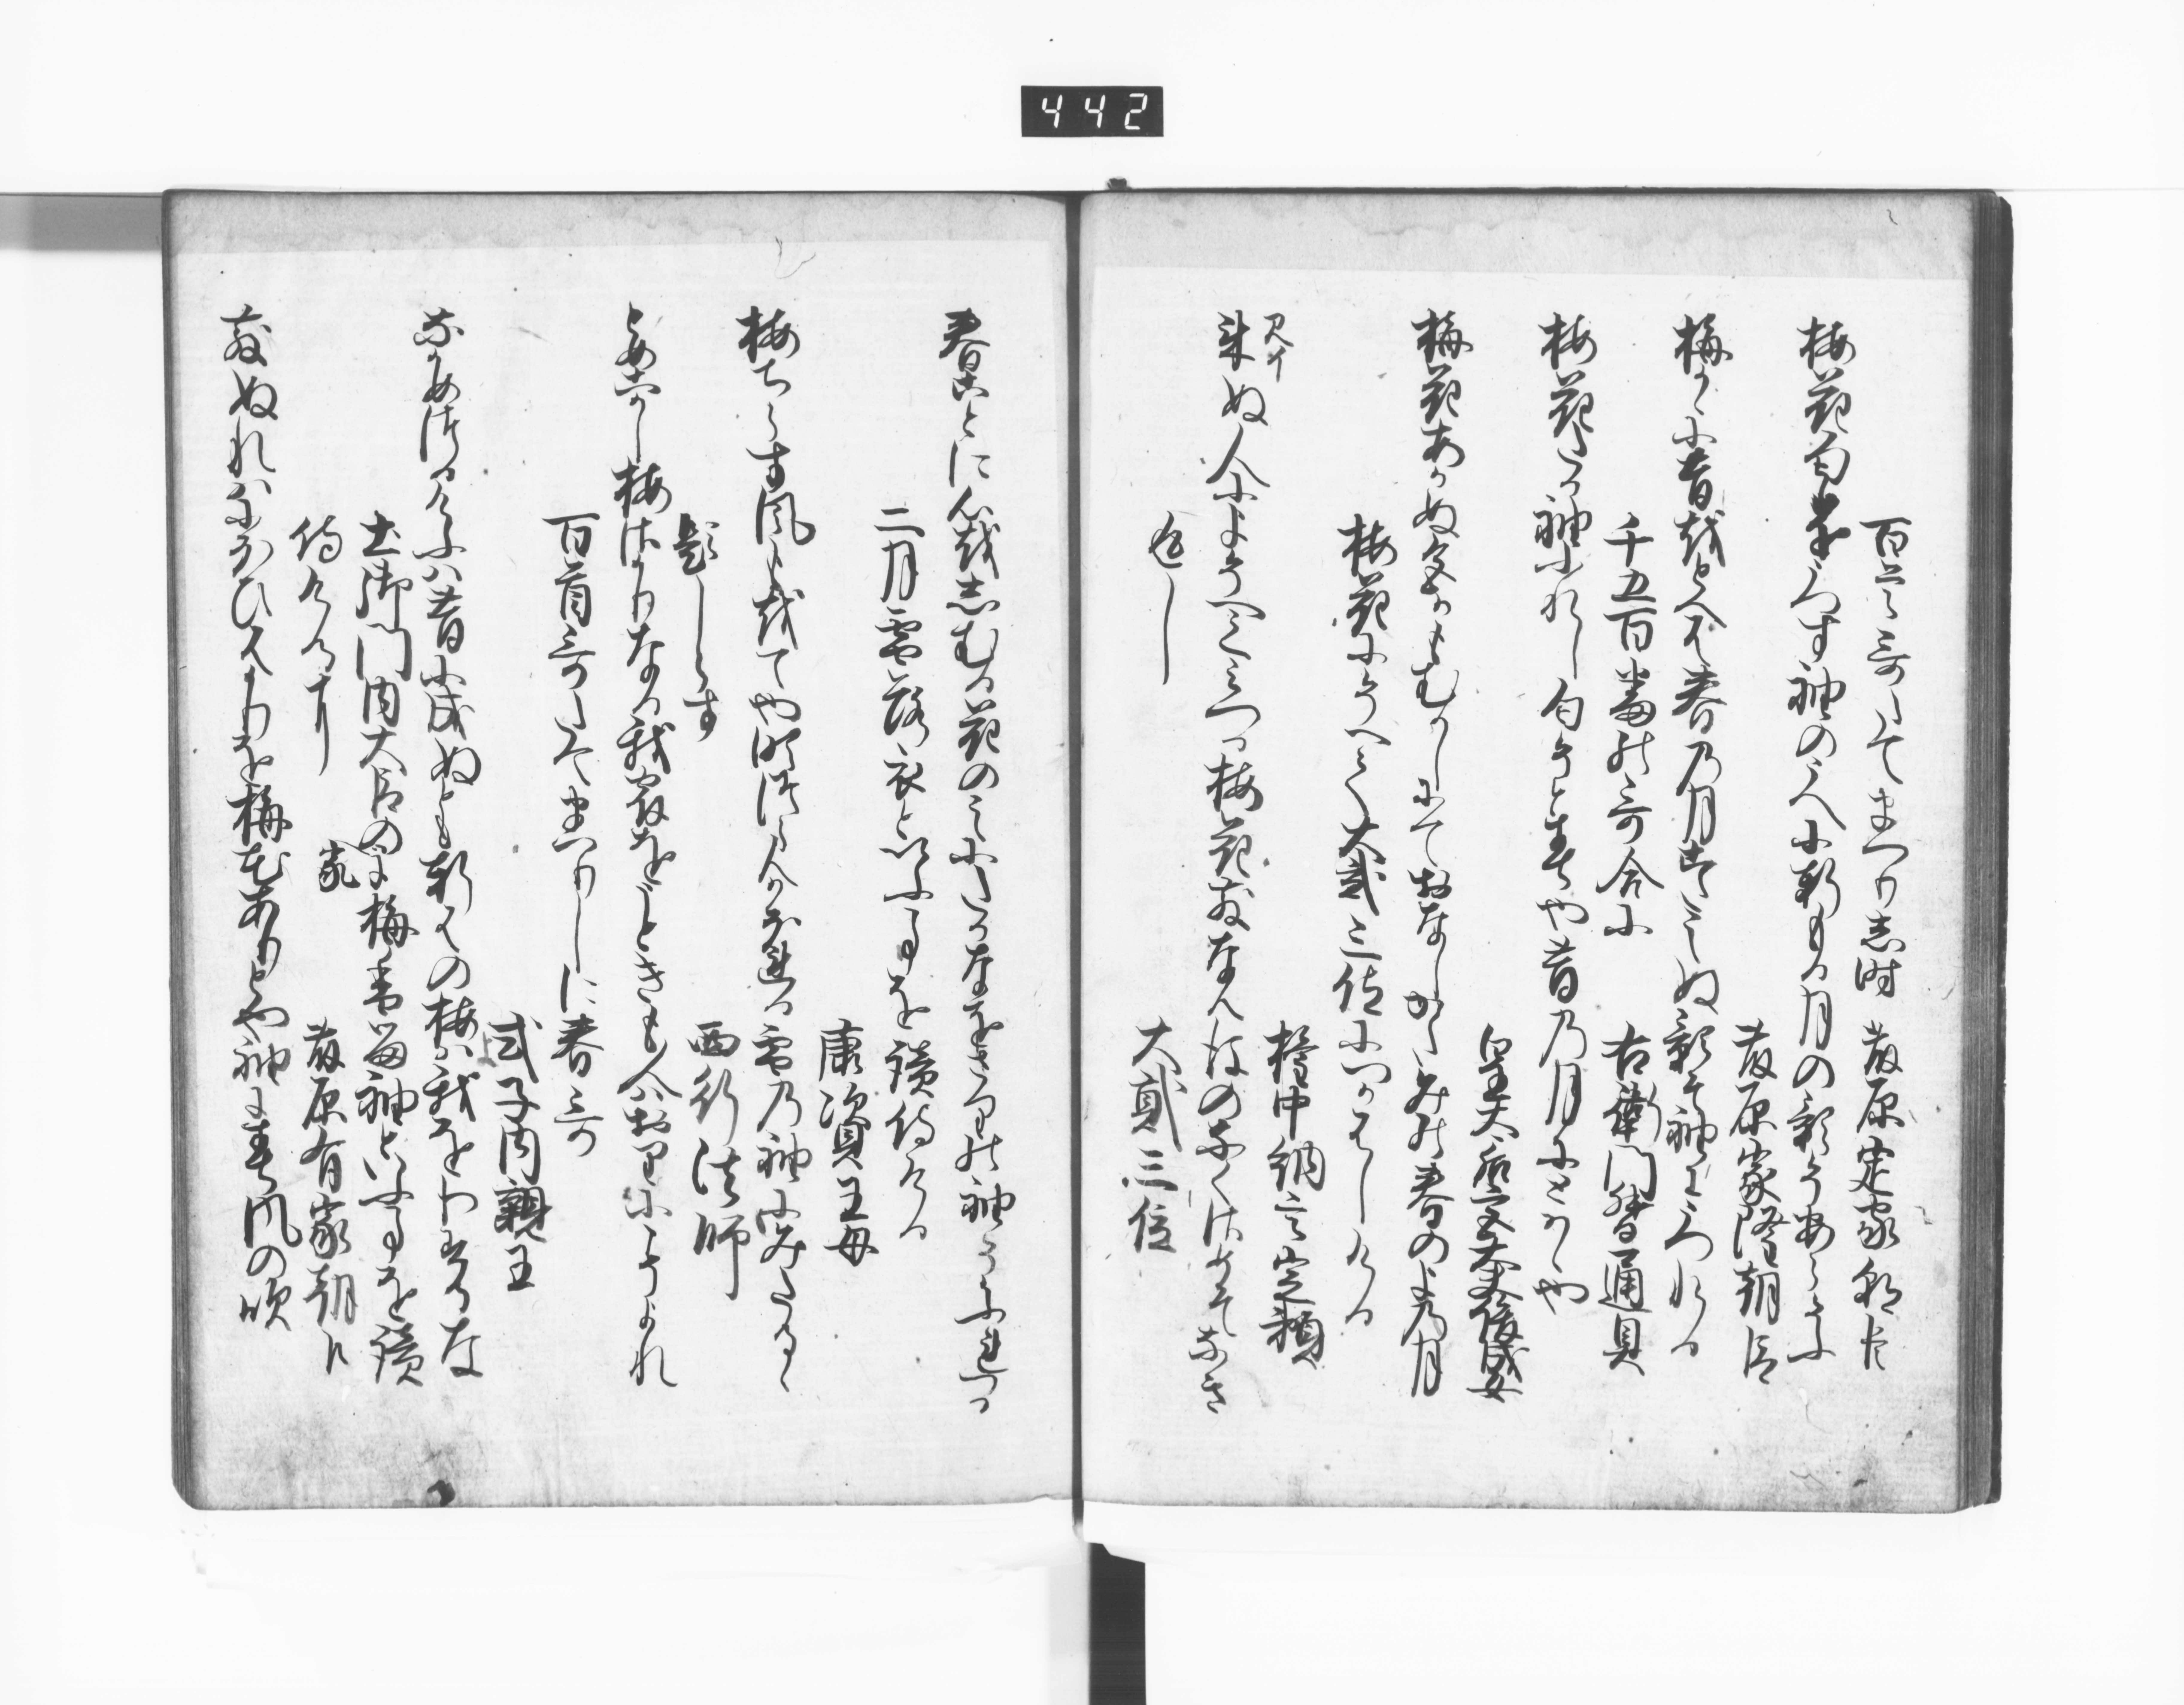 442
百首哥たてまつり志時　藤原定家朝臣
梅花匂をうつす袖のうへに軒もる月の影そあらそふ
藤原家隆朝臣
梅かゝに昔をとへは春乃月こたえぬ影そ袖にうつれる
千五百番の哥合に　右衛門督通具
梅花たか袖ふれし匂そと春や昔乃月にとはゝや
皇太后宮大夫俊成女
梅花あかぬ色かもむかしにておなしかたみの春の夜乃月
梅花にそへて大貳三位につかはしける
権中納言定頼
見イ
来ぬ人によそへてみつる梅花散なん後のなくさめそなき
返し　大貳三位
春ことに心をしむる花のえにたかなをさりの袖かふれつる
二月雪落衣といふことを讀侍ける
康資王母
梅ちらす風もこえてや吹つらんかほれる雪乃袖にみたるゝ
題しらす　西行法師
とめこかし梅さかりなる我宿をうときも人はおりにこそよれ
百首哥たてまつりしに春哥
式子内親王
なかめつるけふは昔に成ぬとも軒はの梅は我をわするな
土御門内大臣の家に梅香留袖といふことを讀
侍けるに　藤原有家朝臣
散ぬれはにほひはかりを梅花ありとや袖に春風の吹